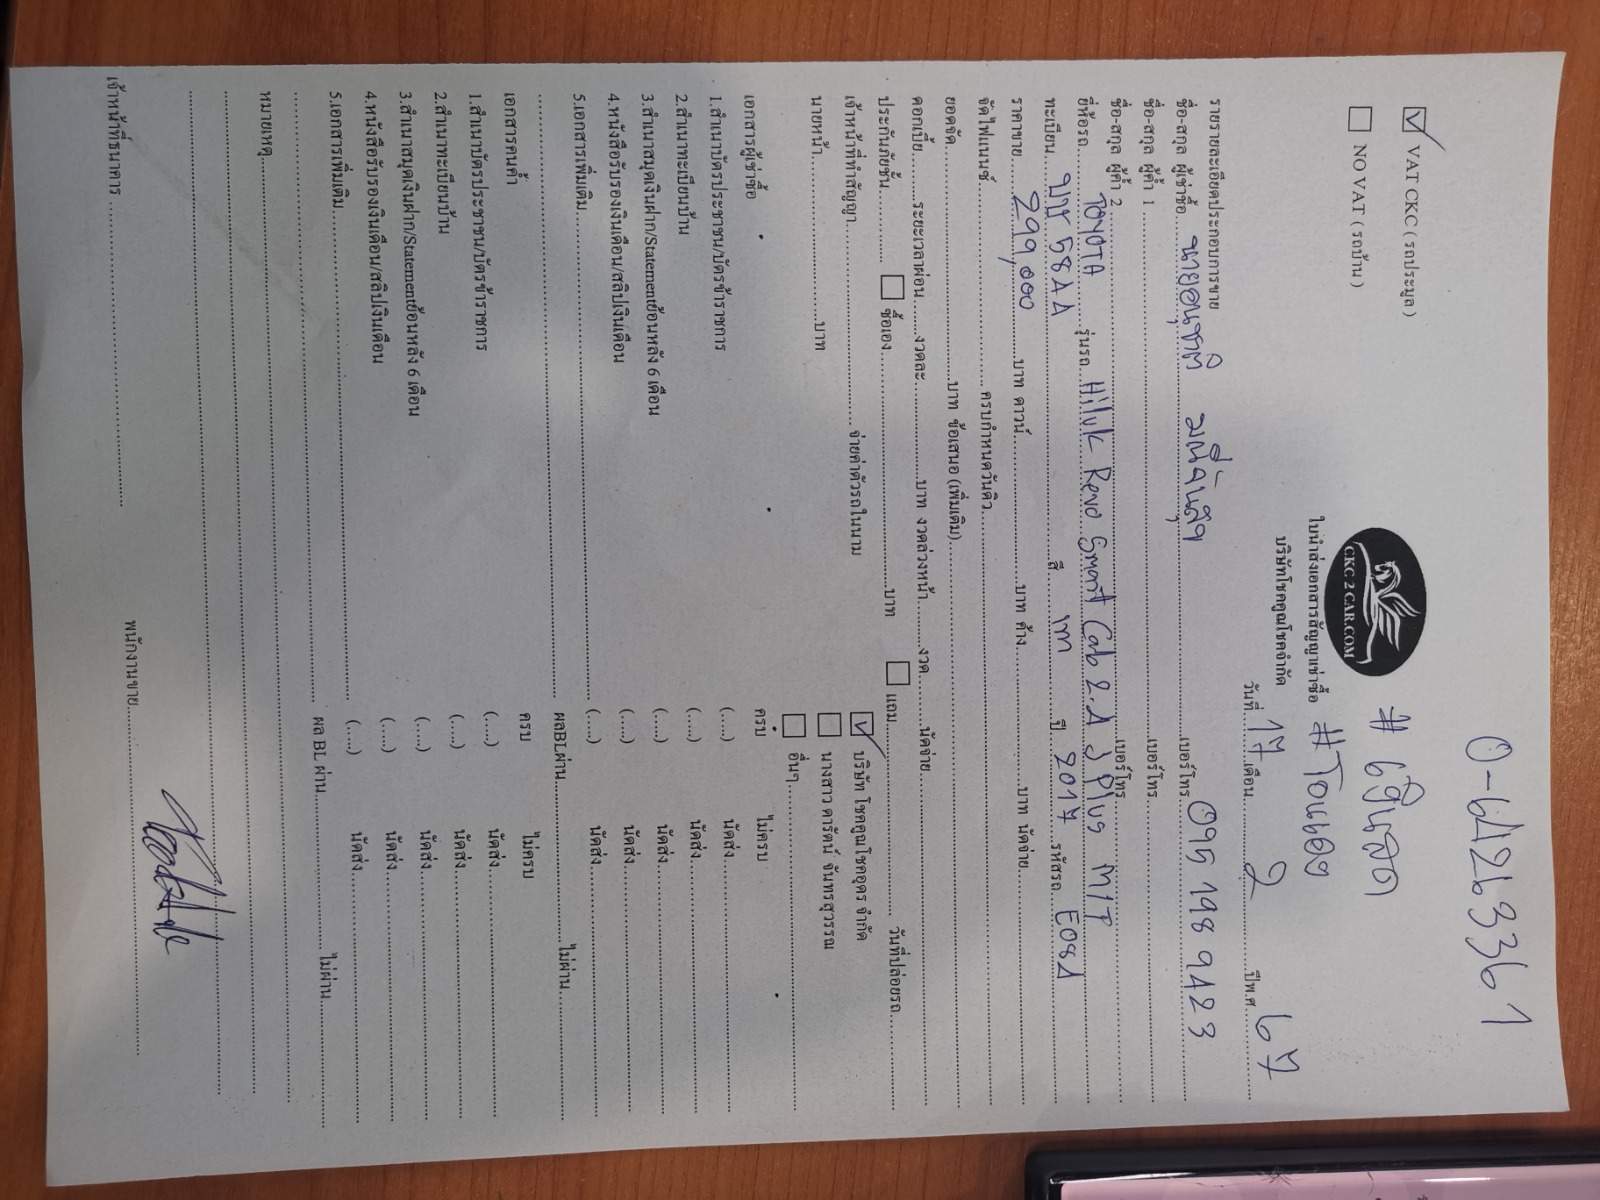 0-6A26336 1
☑ VAT CKC ( รถประมูล )
☐ NO VAT ( รถบ้าน )
CKC 2 CAR.COM
# เงินสด
ใบนำส่งเอกสารสัญญาเช่าซื้อ # โอนเอง
บริษัทโชคคูณโชคจำกัด
วันที่ 17 เดือน 2 ปีพ.ศ 67
รายรายละเอียดประกอบการขาย
ชื่อ-สกุล ผู้เช่าซื้อ เบอร์โทร 095 198 9423
ชื่อ-สกุล ผู้ค้ำ 1 เบอร์โทร
ชื่อ-สกุล ผู้ค้ำ 2 เบอร์โทร
ยี่ห้อรถ TOYOTA รุ่นรถ Hilux Revo Smart Cab 2.4 J Plus M/T
ทะเบียน สี เทา ปี 2017 รหัสรถ E084
ราคาขาย 299,000 บาท ดาวน์ บาท ค้าง บาท นัดจ่าย
จัดไฟแนนซ์ ครบกำหนดวันดิว
ยอดจัด บาท ข้อเสนอ (เพิ่มเติม)
ดอกเบี้ย ระยะเวลาผ่อน งวดละ บาท งวดล่วงหน้า งวด นัดจ่าย
ประกันภัยชั้น ☐ ซื้อเอง บาท ☐ แถม วันที่ปล่อยรถ
เจ้าหน้าที่ทำสัญญา จ่ายค่าตัวรถในนาม ☑ บริษัท โชคคูณโชคอุดร จำกัด
นายหน้า บาท ☐ นางสาว ดารัตน์ จันทรสุวรรณ
☐ อื่นๆ
เอกสารผู้เช่าซื้อ ครบ ไม่ครบ
1.สำเนาบัตรประชาชน/บัตรข้าราชการ (....) นัดส่ง
2.สำเนาทะเบียนบ้าน (....) นัดส่ง
3.สำเนาสมุดเงินฝาก/Statementย้อนหลัง 6 เดือน (....) นัดส่ง
4.หนังสือรับรองเงินเดือน/สลิปเงินเดือน (....) นัดส่ง
5.เอกสารเพิ่มเติม (....) นัดส่ง
ผลBLผ่าน ไม่ผ่าน
เอกสารคนค้ำ ครบ ไม่ครบ
1.สำเนาบัตรประชาชน/บัตรข้าราชการ (....) นัดส่ง
2.สำเนาทะเบียนบ้าน (....) นัดส่ง
3.สำเนาสมุดเงินฝาก/Statementย้อนหลัง 6 เดือน (....) นัดส่ง
4.หนังสือรับรองเงินเดือน/สลิปเงินเดือน (....) นัดส่ง
5.เอกสารเพิ่มเติม (....) นัดส่ง
ผล BL ผ่าน ไม่ผ่าน
หมายเหตุ
เจ้าหน้าที่ธนาคาร พนักงานขาย